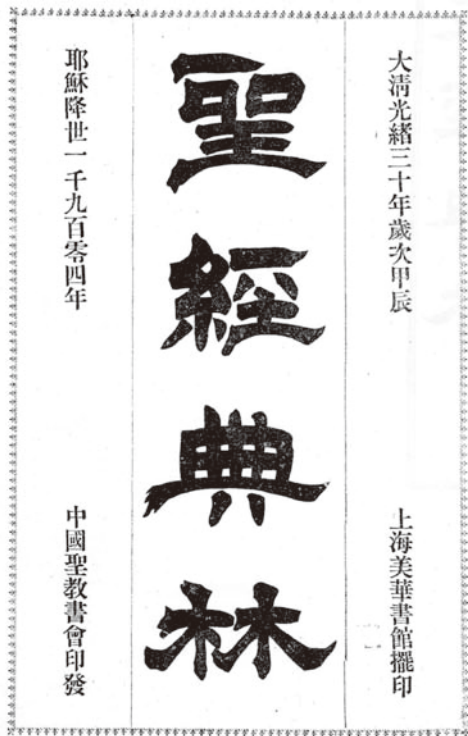 大淸光緒三十年歲次甲辰
上海美華書館擺印
聖經典林
耶穌降世一千九百零四年
中國聖教書會印發